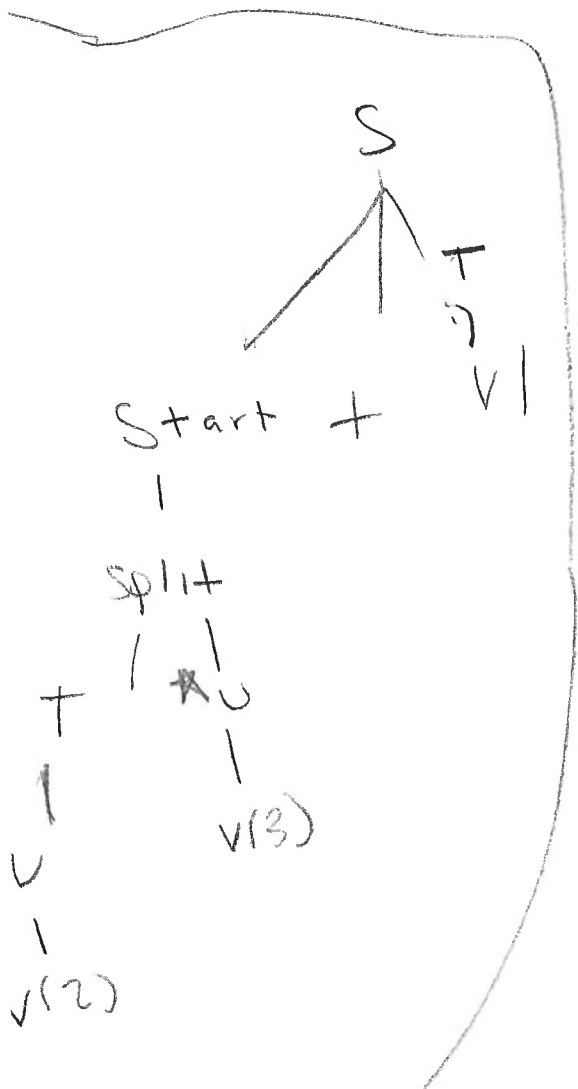 S
T
V1
Start +
split
T * U
v(3)
U
v(2)